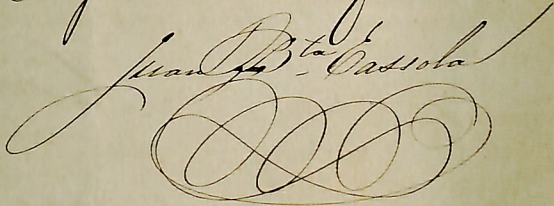 Juan Bta Cassola